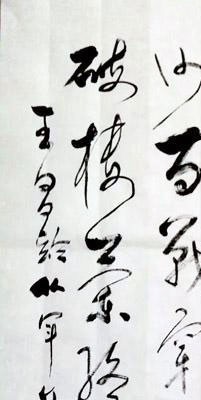 沙百战穿
破楼兰终
王昌龄从军